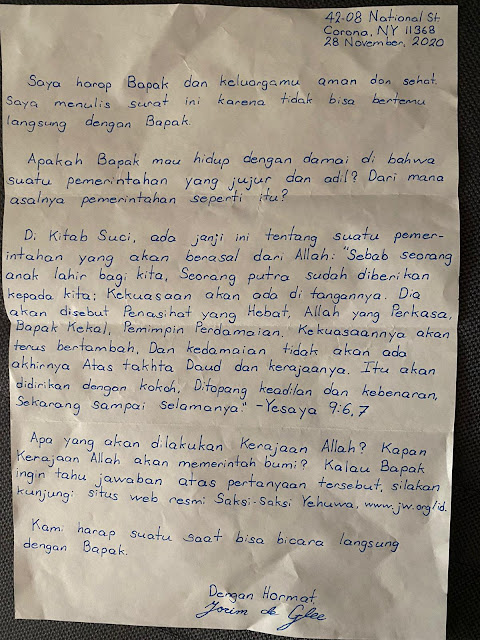 42-08 National St
Corona, NY 11368
28 November, 2020
Saya harap Bapak dan keluargamu aman dan sehat.
Saya menulis surat ini karena tidak bisa bertemu
langsung dengan Bapak.
Apakah Bapak mau hidup dengan damai di bahwa
suatu pemerintahan yang jujur dan adil? Dari mana
asalnya pemerintahan seperti itu?
Di Kitab Suci, ada janji ini tentang suatu pemer-
intahan yang akan berasal dari Allah: "Sebab seorang
anak lahir bagi kita, Seorang putra sudah diberikan
kepada kita; Kekuasaan akan ada di tangannya. Dia
akan disebut Penasihat yang Hebat, Allah yang Perkasa,
Bapak Kekal, Pemimpin Perdamaian. Kekuasaannya akan
terus bertambah, Dan kedamaian tidak akan ada
akhirnya Atas takhta Daud dan kerajaanya. Itu akan
didirikan dengan kokoh, Ditopang keadilan dan kebenaran,
Sekarang sampai selamanya." -Yesaya 9:6,7
Apa yang akan dilakukan Kerajaan Allah? Kapan
Kerajaan Allah akan memerintah bumi? Kalau Bapak
ingin tahu jawaban atas pertanyaan tersebut, silakan
kunjungi situs web resmi Saksi-Saksi Yehuwa, www.jw.org/id.
Kami harap suatu saat bisa bicara langsung
dengan Bapak.
Dengan Hormat,